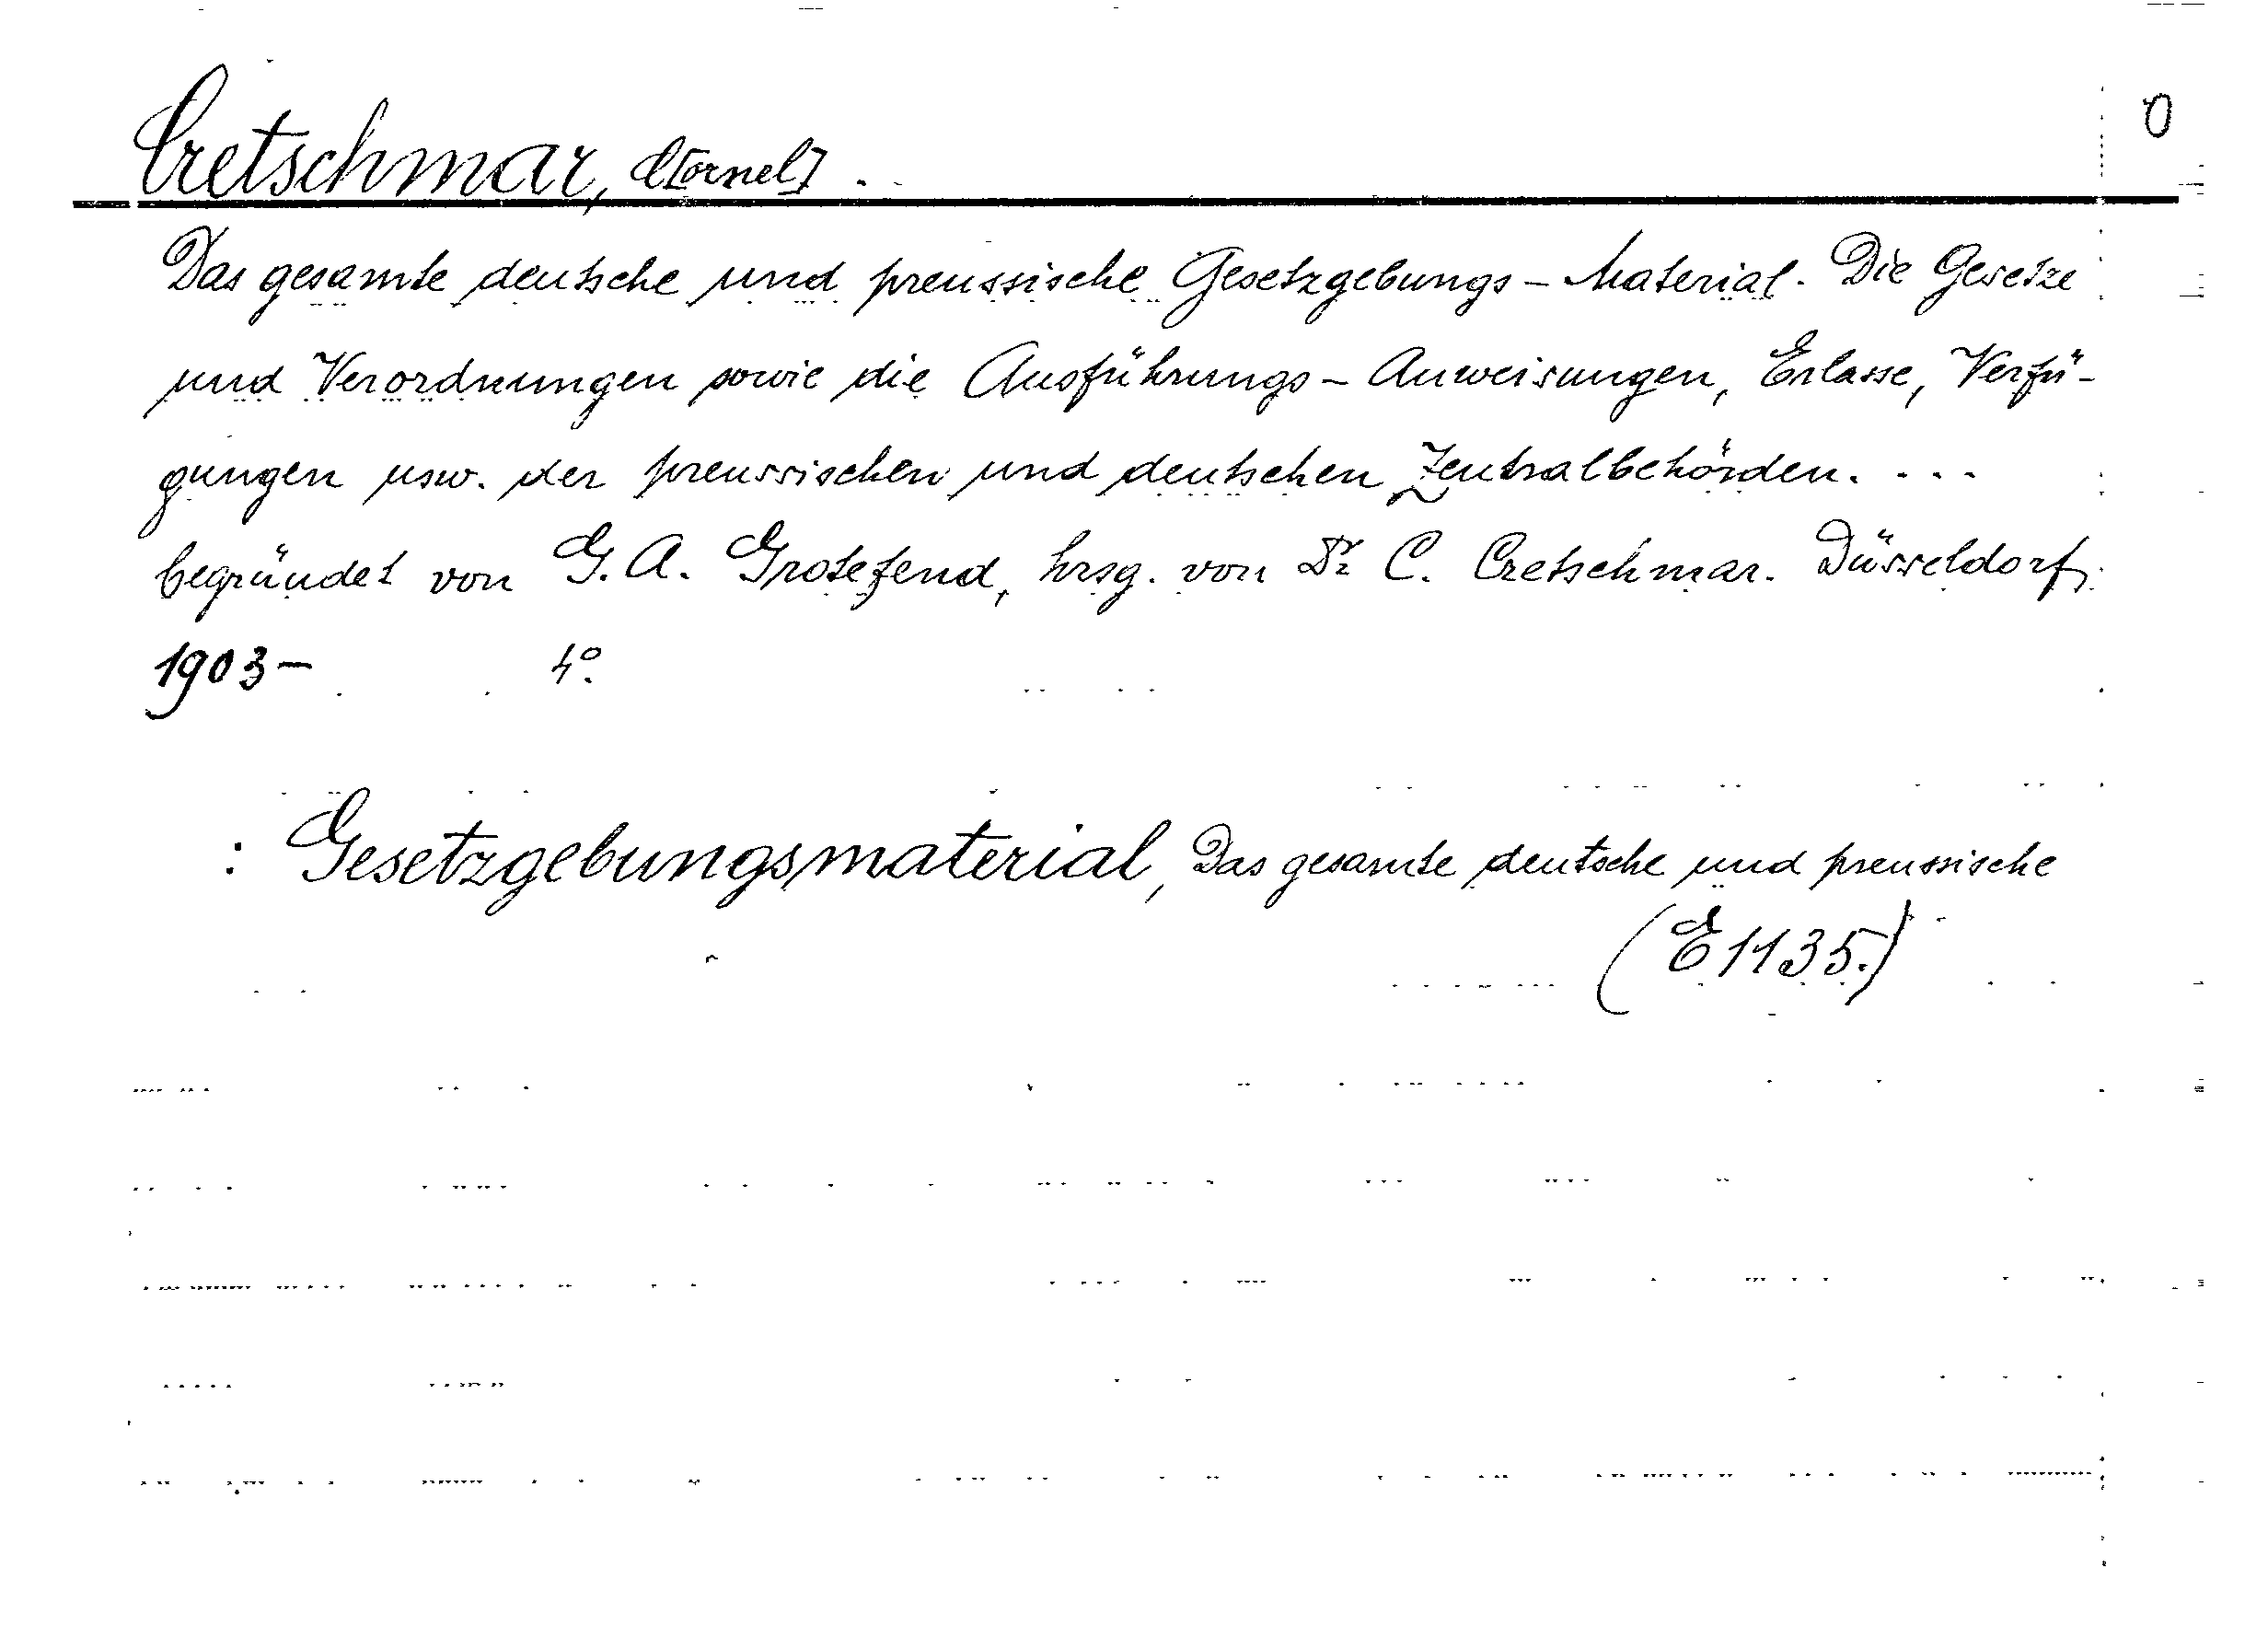 Cretschmar, C[ornel] . O
Das gesamte deutsche und preussische Gesetzgebungs-Material. Die Gesetze
und Verordnungen sowie die Ausführungs-Anweisungen, Erlasse, Verfü-
gungen usw. der preussischen und deutschen Zentralbehörden. . . .
begründet von G. A. Grotefend, hrsg. von Dr C. Cretschmar. Düsseldorf,
1903– 4°.
: Gesetzgebungsmaterial, Das gesamte deutsche und preussische
(E 1135.)